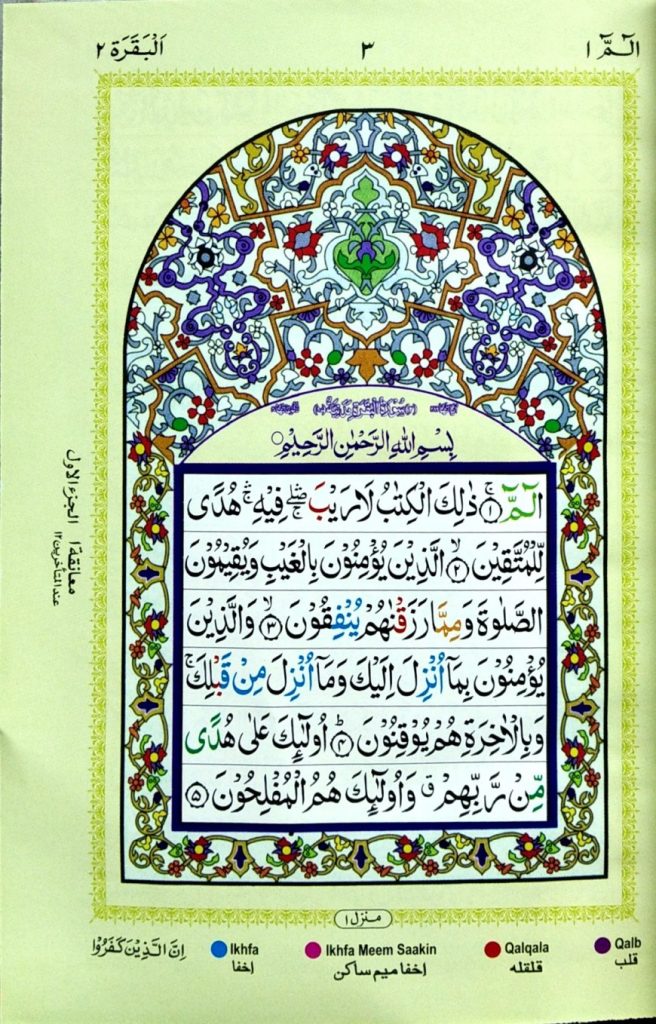 الٓمّٓ ١
٣
اَلْبَقَرَة ٢
بِسْمِ اللهِ الرَّحْمٰنِ الرَّحِيْمِ ○
الٓمّٓ ۚ ﴿١﴾ ذٰلِكَ الْكِتٰبُ لَا رَيْبَ ۛۖ ۚ فِيْهِ ۛۚ هُدًى
لِّلْمُتَّقِيْنَ ۙ ﴿٢﴾ الَّذِيْنَ يُؤْمِنُوْنَ بِالْغَيْبِ وَيُقِيْمُوْنَ
الصَّلٰوةَ وَمِمَّا رَزَقْنٰهُمْ يُنْفِقُوْنَ ۙ ﴿٣﴾ وَالَّذِيْنَ
يُؤْمِنُوْنَ بِمَآ اُنْزِلَ اِلَيْكَ وَمَآ اُنْزِلَ مِنْ قَبْلِكَ ۚ
وَبِالْاٰخِرَةِ هُمْ يُوْقِنُوْنَ ؕ ﴿٤﴾ اُولٰٓئِكَ عَلٰى هُدًى
مِّنْ رَّبِّهِمْ ۗ وَاُولٰٓئِكَ هُمُ الْمُفْلِحُوْنَ ﴿٥﴾
الجزء الاول
معانقة ١
عند المتأخرين ١٢
منزل ١
Qalb
قلب
Qalqala
قلقله
Ikhfa Meem Saakin
اخفا ميم ساكن
Ikhfa
اخفا
اِنَّ الَّذِيْنَ كَفَرُوْا